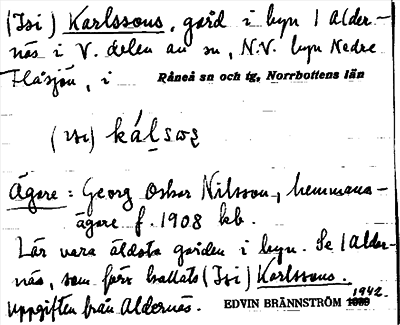 (Isi) Karlssons, gård i byn Alder-
näs i V. delen av sn, N.V. byn Nedre
Flåsjön, i Råneå sn och tg, Norrbottens län
Ägare: Georg Oskar Nilsson, hemmans-
ägare f. 1908 bb.
Lär vara äldsta gården i byn. Se Alder-
näs, som förr kallats (Isi) Karlssons.
Uppgiften från Aldernäs. EDVIN BRÄNNSTRÖM 1942